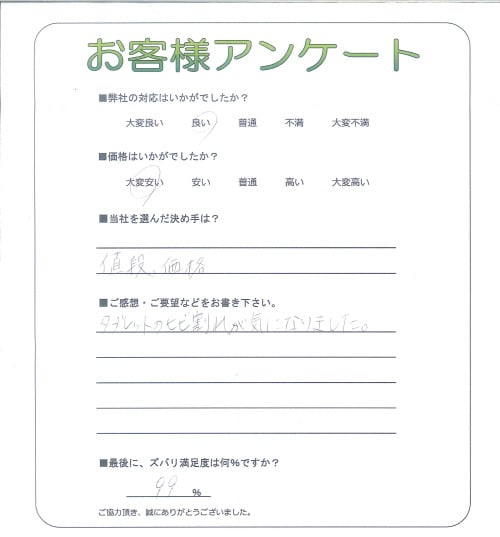 お客様アンケート
■弊社の対応はいかがでしたか？
大変良い 良い 普通 不満 大変不満
■価格はいかがでしたか？
大変安い 安い 普通 高い 大変高い
■当社を選んだ決め手は？
値段、価格
■ご感想・ご要望などをお書き下さい。
タブレットのヒビ割れが気になりました。
■最後に、ズバリ満足度は何%ですか？
99 %
ご協力頂き、誠にありがとうございました。